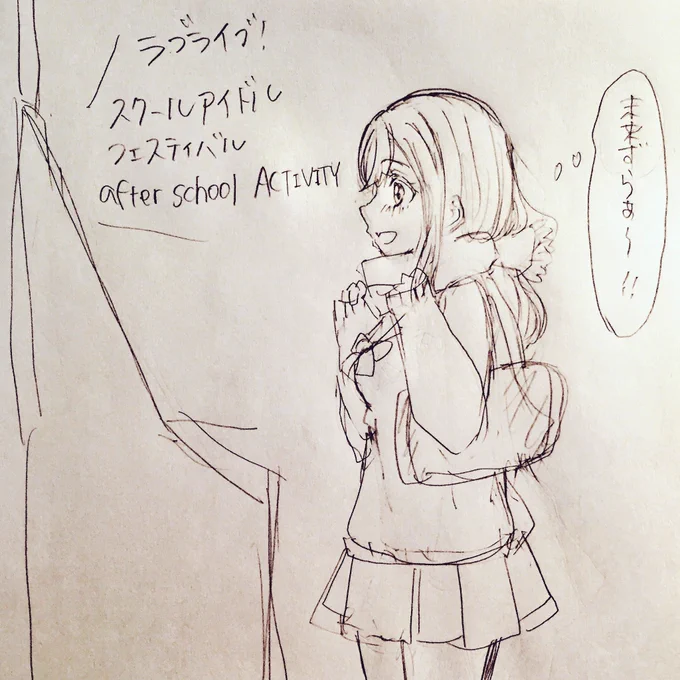 ラブライブ!
スクールアイドル
フェスティバル
after school ACTIVITY
未来ずらぁ〜!!